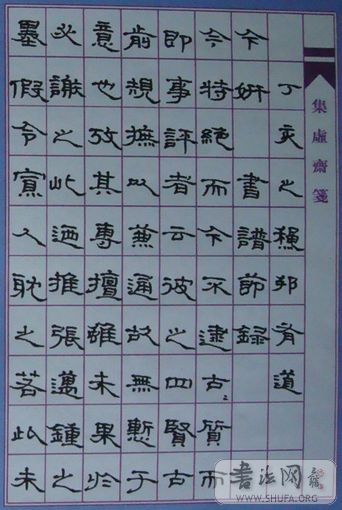 墨假令寡人耽之若此未
必謝之此迺推張邁鍾之
意也攷其專擅雖未果於
歬規摭以兼通故無慙于
即事評者云彼之四賢古
今特絕而今不逮古〻質而
今妍 書譜節錄
丁亥之穐邾有道
集虛齋箋
书法网
WWW.SHUFA.ORG